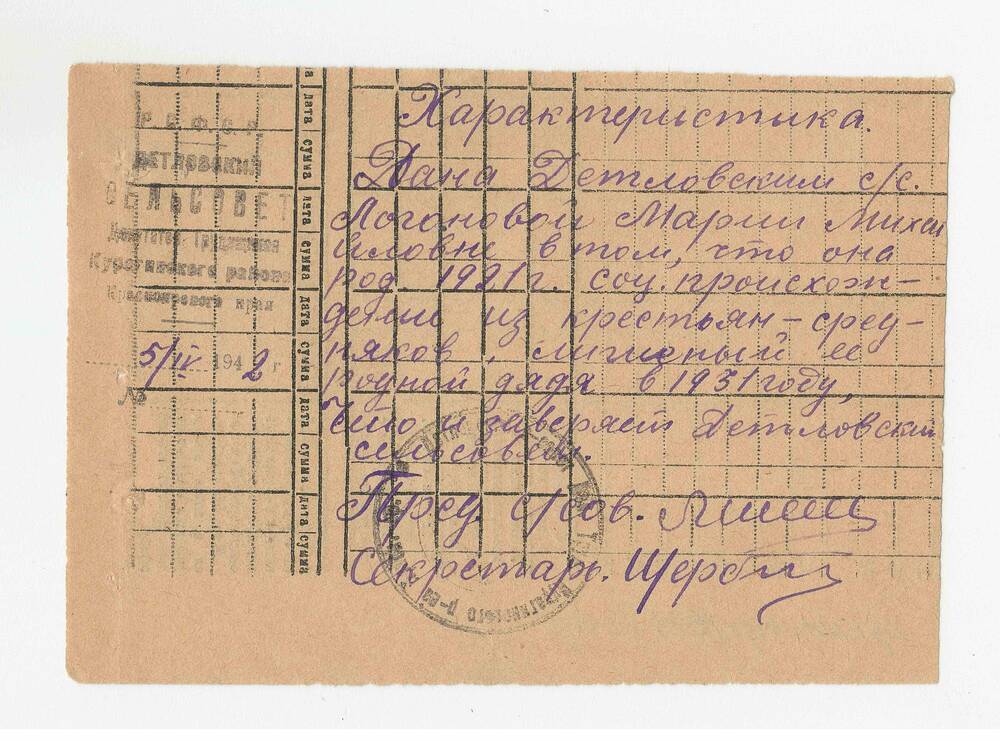 Р.С.Ф.С.Р.
ДЕТЛОВСКИЙ
СЕЛЬСОВЕТ
Депутатов Трудящихся
Курагинского района
Красноярского края
5/IV 1942 г
№
дата сумма дата сумма дата сумма дата сумма дата сумма
Характеристика.
Дана Детловским с/с.
Логоновой Марии Михаи
иловне в том, что она
род. 1921 г. соц. происхож-
дению из крестьян-сред-
няков, лишеный ее
родной дядя в 1931 году,
Что и заверяет Детловский
сельсовет.
Пред. с/сов.
Секретарь.
Курагинского р-на